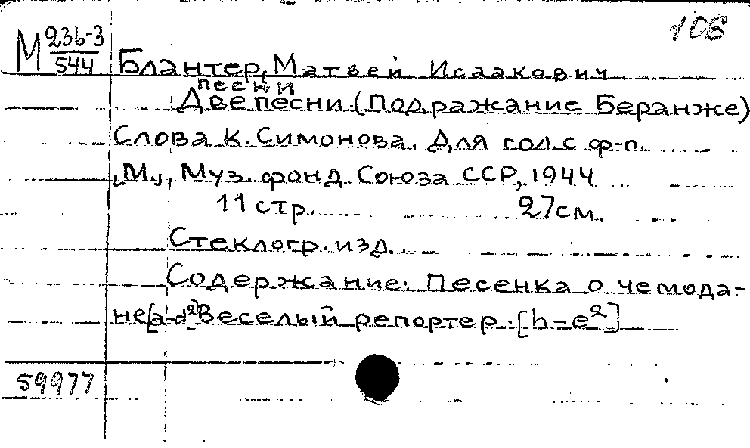 108
М 236-3
544
Блантер, Матвей Исаакович
песни
Две песни (Подражание Беранже)
Слова К. Симонова. Для гол. с ф-п.
"М.", Муз. фонд Союза ССР, 1944
11 стр. 27 см.
Стеклогр. изд.
Содержание. Песенка о чемода-
не [a-d²] Веселый репортер. [h-e²]
59977